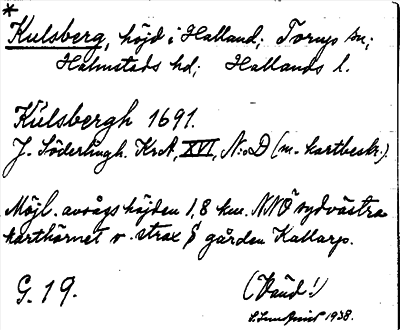 *
Kulsberg, höjd i Halland; Torups sn;
Halmstads hd; Hallands l.
Kulsbergh 1691.
J. Söderlingh. KrA, XVI, N:o D (m. kartbeskr.).
Möjl. avsågs höjden 1,8 km. NNÖ sydvästra
karthörnet v. strax S gården Kallarp.
G. 19.
1938.